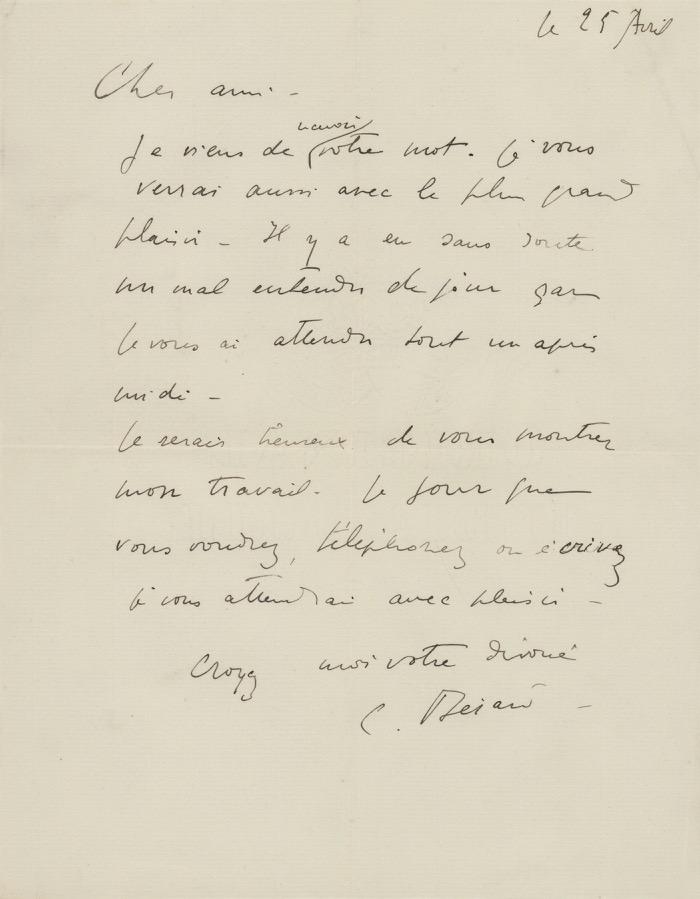 le 25 Avril
Cher ami -
recevoir
Je viens de votre mot. je vous
verrai aussi avec le plus grand
plaisir - Il y a eu sans doute
un mal entendu de jour car
je vous ai attendu tout un après
midi -
Je serais heureux de vous montrer
mon travail. le jour que
vous voudrez, téléphonez ou écrivez
je vous attendrai avec plaisir -
Croyez moi votre dévoué
C. Bérard -